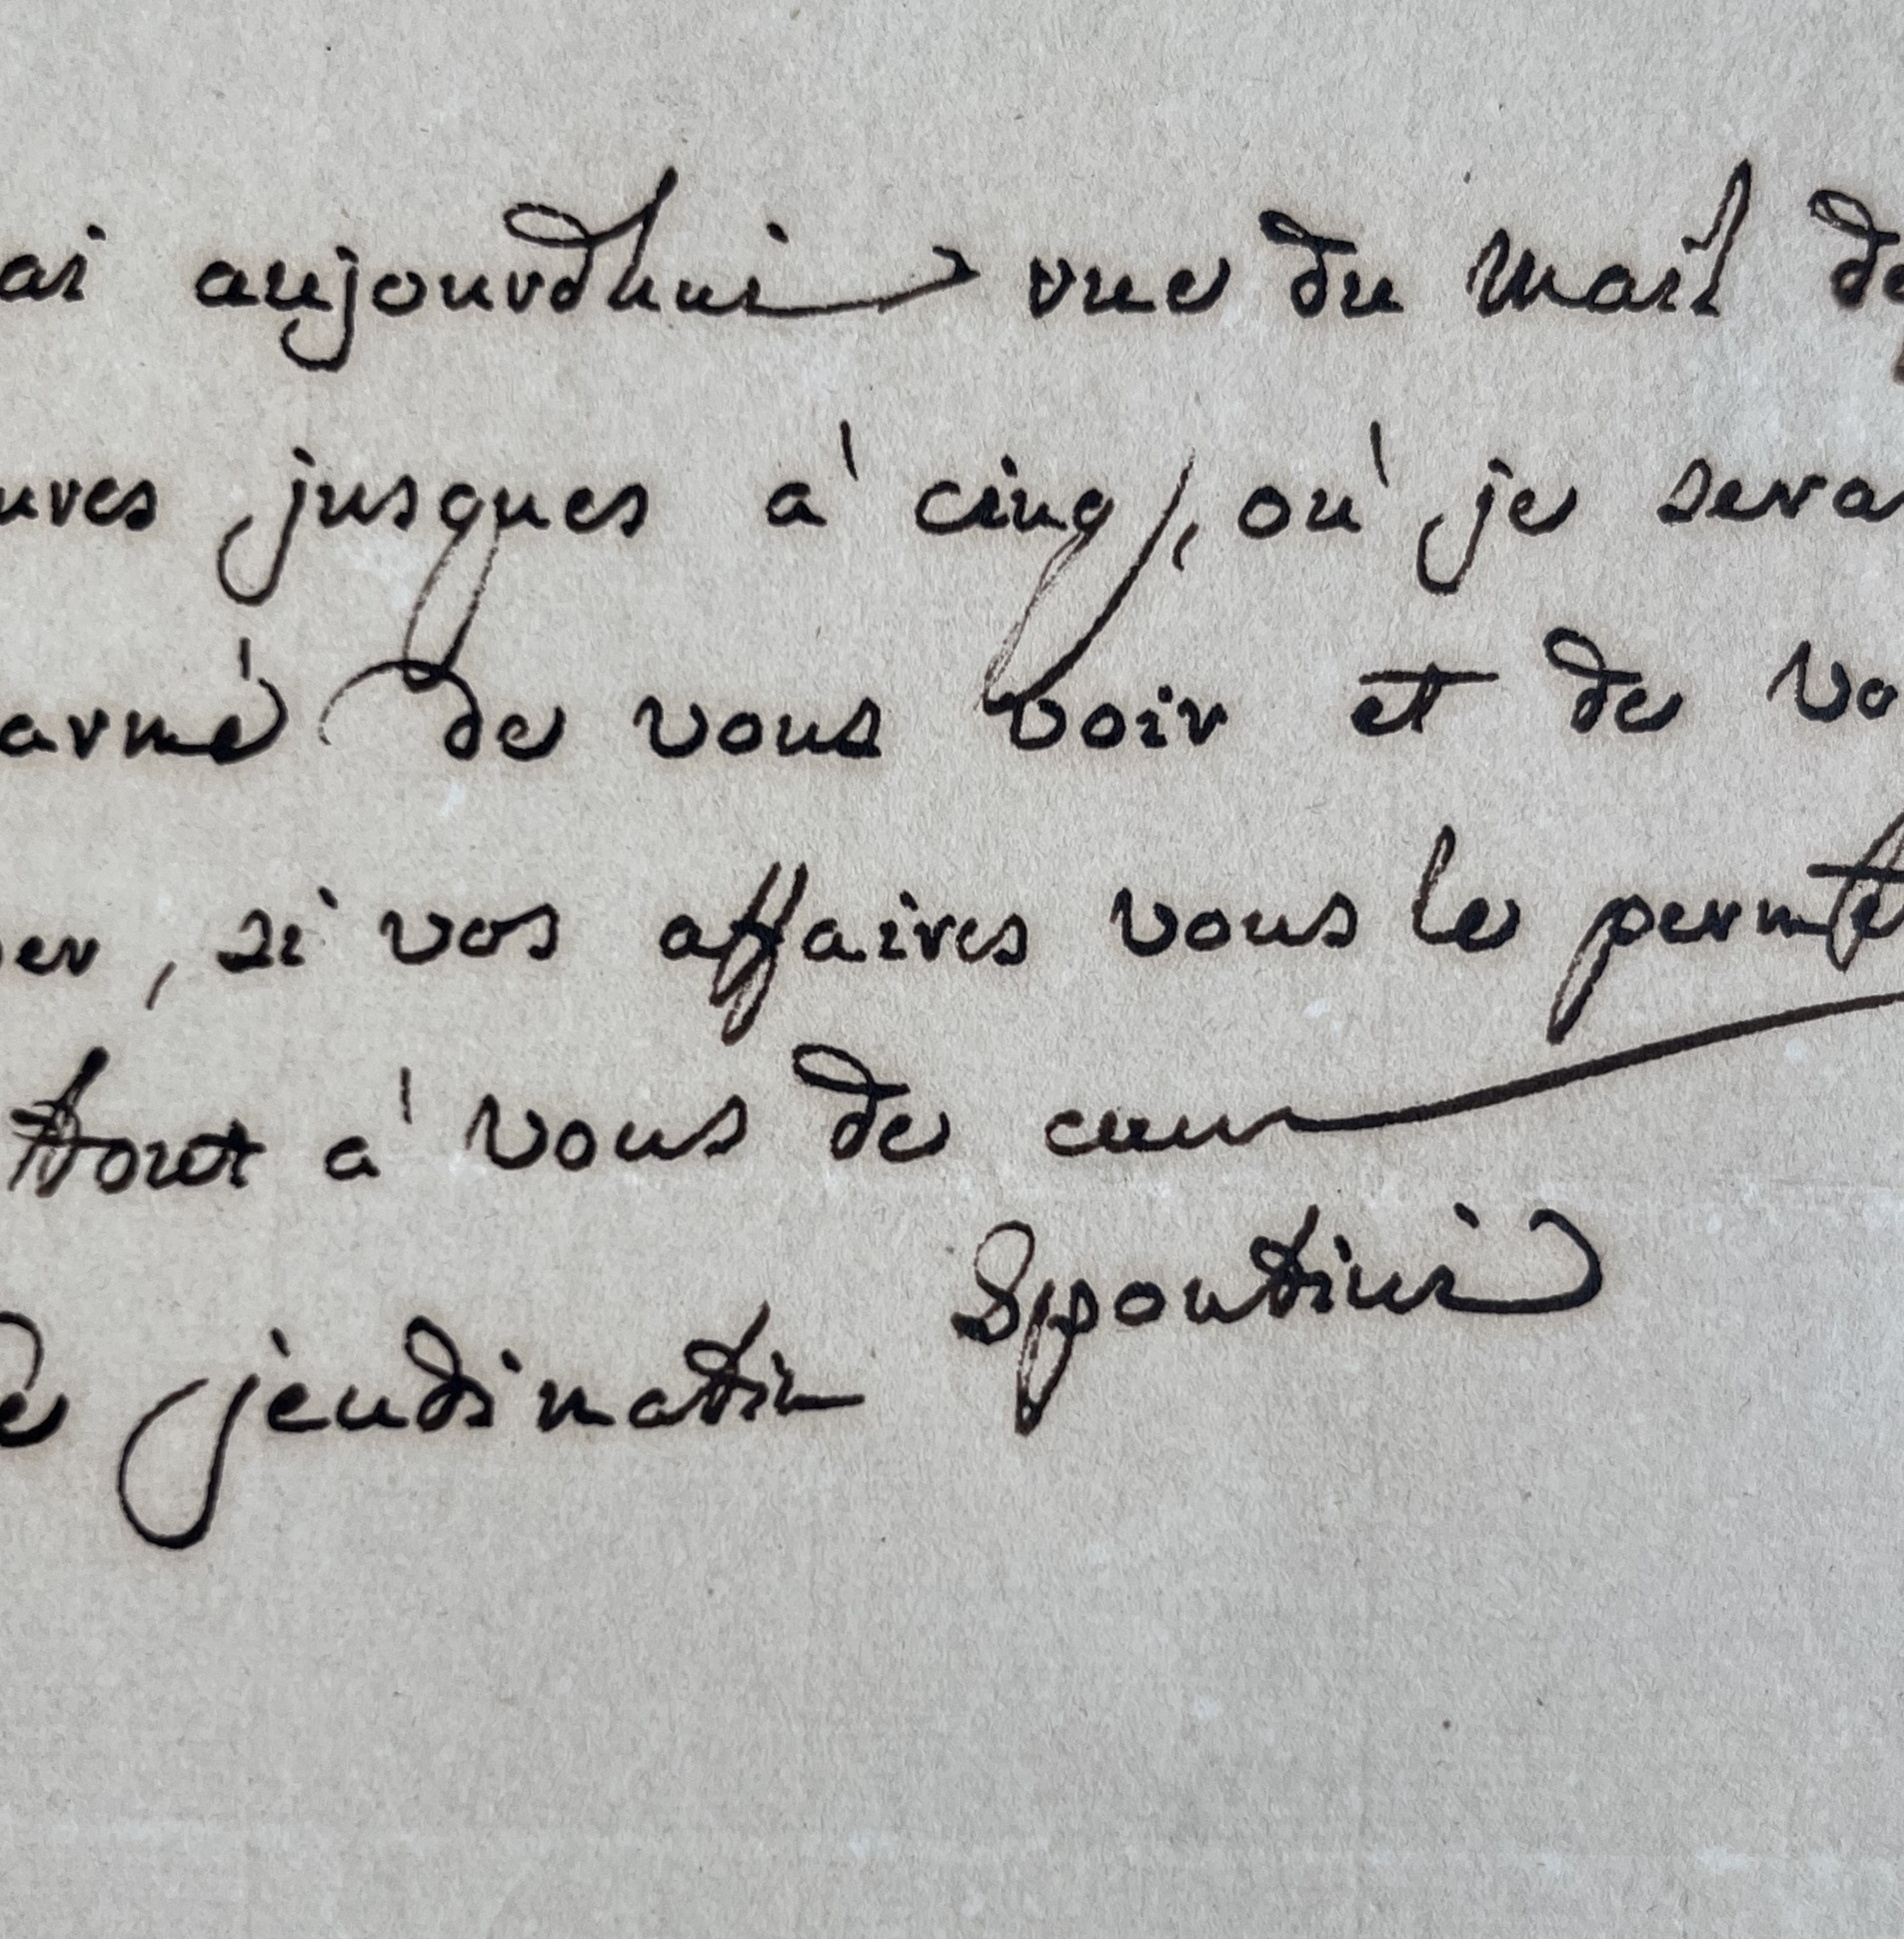 ai aujourdhui rue du Mail de
ures jusques à cinq, où je sera
armé de vous voir et de vo
er, si vos affaires vous le permet
tout à vous de cœur
Spontini
Ce jeudi matin